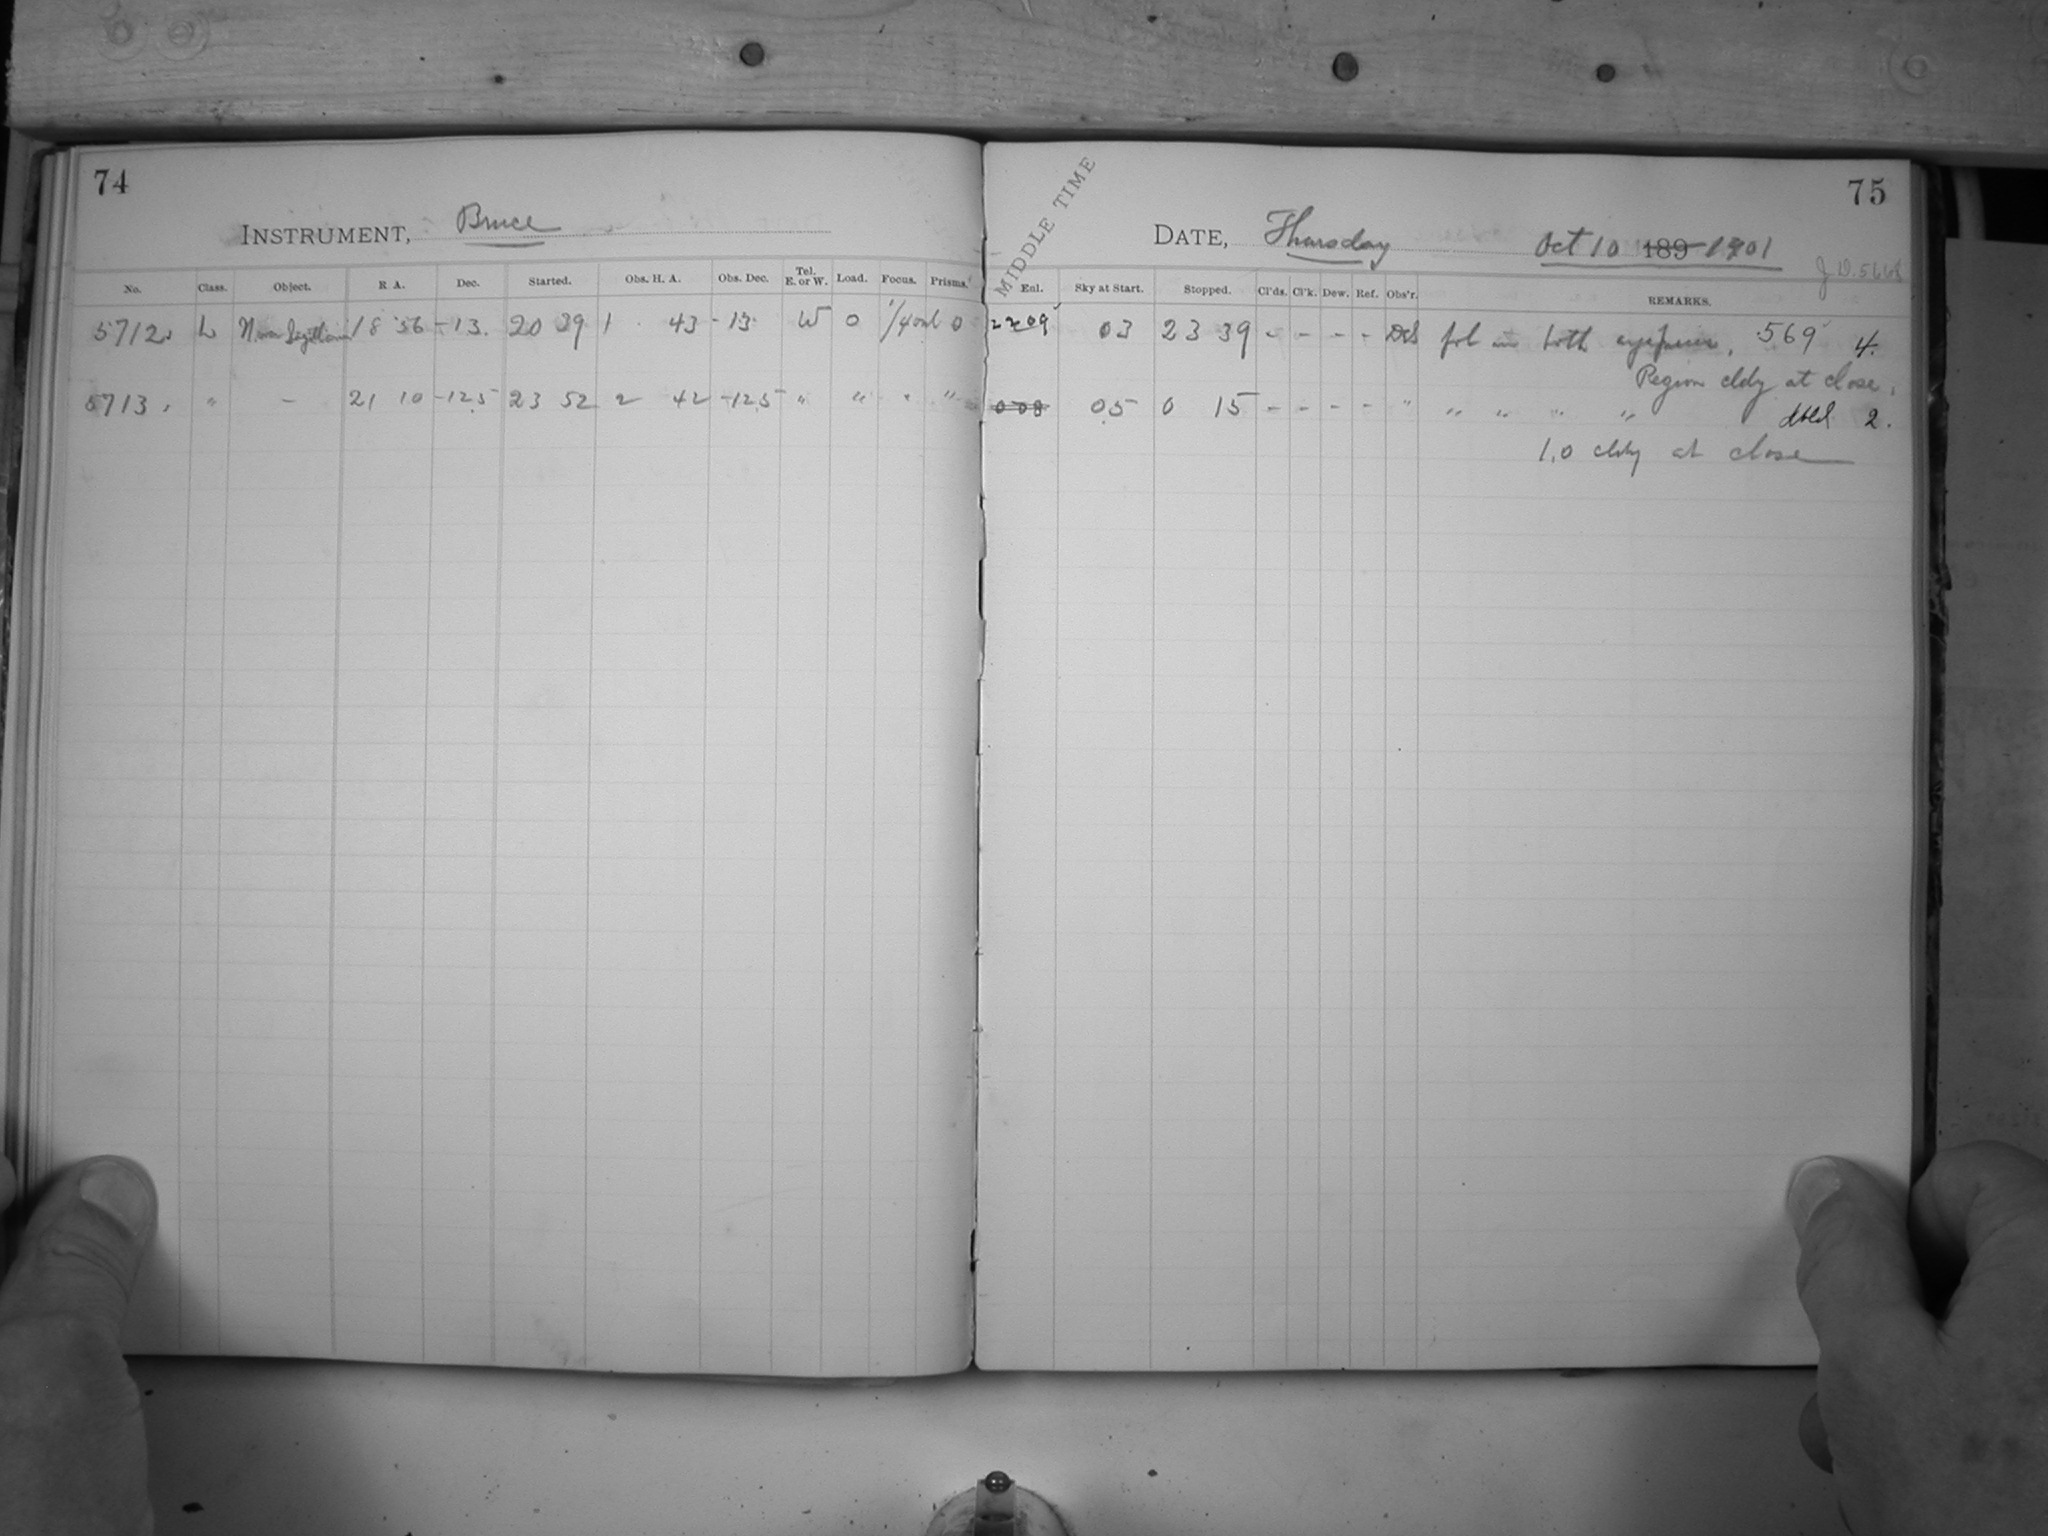 74
INSTRUMENT, Bruce
No. Class. Object. R A. Dec. Started. Obs. H. A. Obs. Dec. Tel. E. or W. Load. Focus. Prisms.
5712. L Nova Sagittarii 18 56 -13. 20 39 1 43 -13 W 0 0
5713. " - 21 10 -12.5 23 52 2 42 -12.5 " " " "
75
MIDDLE TIME
DATE, Thursday Oct 10 189 1901
J.D. 5668
Enl. Sky at Start. Stopped. Cl'ds. Cl'k. Dew. Ref. Obs'r. REMARKS.
2209 03 23 39 - - - - fol in both eyepieces. 569 4.
Region cldy at close.
0 08 05 0 15 - - - - " " " " " 2.
1.0 cldy at close